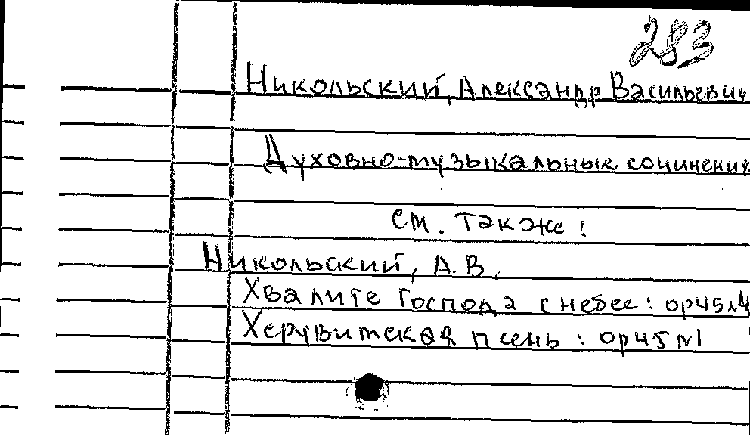 283
Никольский, Александр Васильевич
Духовно-музыкальных сочинения
см. также:
Никольский, А.В.
Хвалите Господа с небес: ор45л4
Херувимская песнь: ор45 №1